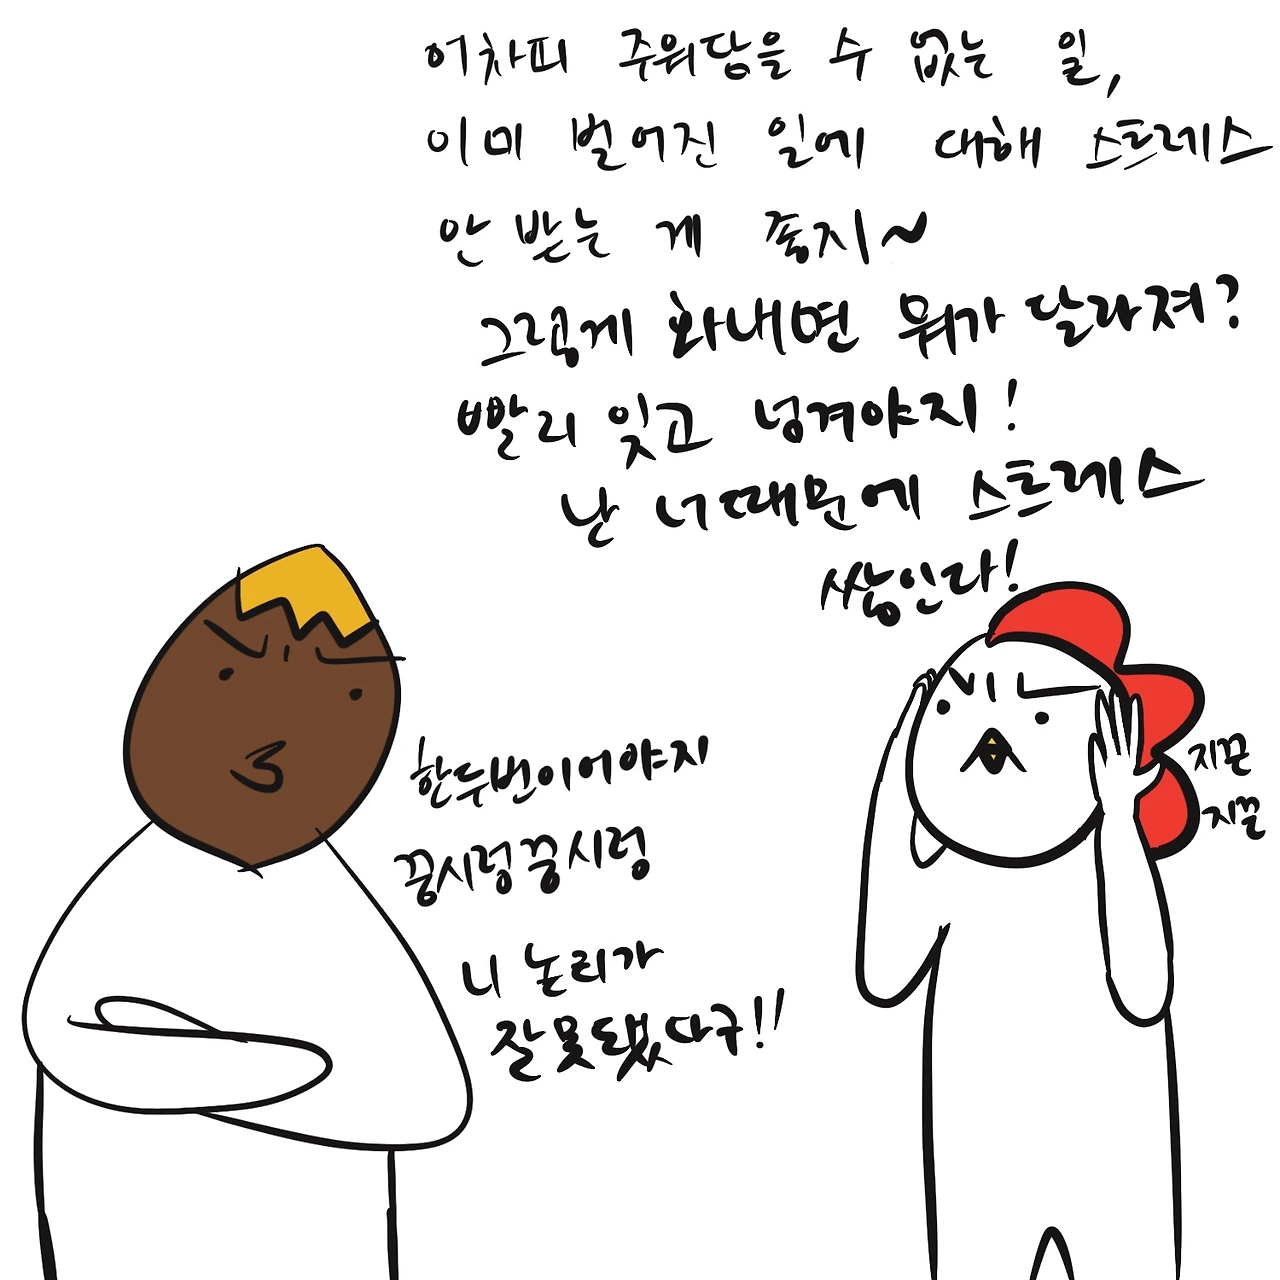 어차피 주워담을 수 없는 일,
이미 벌어진 일에 대해 스트레스
안 받는 게 좋지~
그렇게 화내면 뭐가 달라져?
빨리 잊고 넘겨야지!
난 너때문에 스트레스
쌓인다!
한두번이어야지
꿍시렁꿍시렁
니 논리가
잘못됐다구!!
지끈
지끌